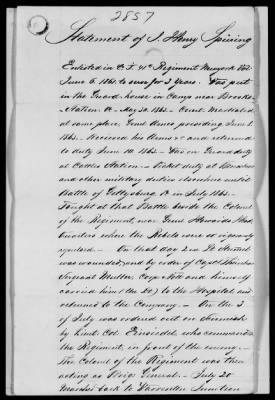 2857
Statement of J. Henry Spining
Enlisted in Co. F. 41st Regiment New York Vol.
June 6. 1861 to serve for 3 Years. Was put
in the Guard house in Camp near Brooks
Station Va. May 30. 1863 - Court Martialed
at same place, Genl Ames presiding June 1.
1863. Received his Arms and returned
to duty June 10. 1863 - Was on Guard duty
at Catlett Station - Picket duty at
and other military duties elsewhere until
Battle of Gettysburg Pa in July 1863 -
Fought at that Battle beside the Colonel
of the Regiment, near Genl Howards Head
Quarters where the Rebels were so vigorously
repulsed. - On that day 2nd Lt
was wounded, and by order of Capt
Sergeant Muller, Corp and himself
carried him (the Lt) to the Hospital, and
returned to the Company. - On the 3
of July was ordered out on Skirmish
by Lieut Col. Einsiedel, who commanded
the Regiment, in front of the enemy. -
The Colonel of the Regiment was then
acting as Brig. General. - July 20
marched back to Warrenton Junction